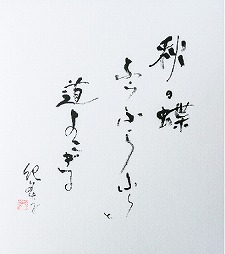 秋の蝶
ふらふらふらと
道よこぎる